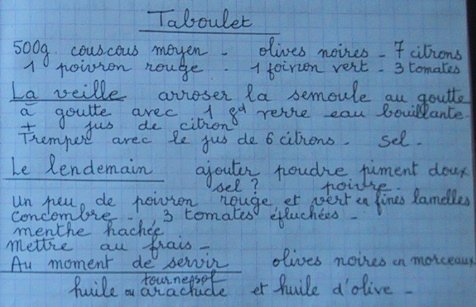 Taboulet
500g couscous moyen - olives noires - 7 citrons
1 poivron rouge - 1 poivron vert - 3 tomates
La veille arroser la semoule au goutte
à goutte avec 1 gd verre eau bouillante
+ jus de citron
Tremper avec le jus de 6 citrons - Sel -
Le lendemain ajouter poudre piment doux
sel ? poivre -
un peu de poivron rouge et vert en fines lamelles
concombre - 3 tomates épluchées -
menthe hachée
Mettre au frais -
Au moment de servir olives noires en morceaux
tournesol
huile ou arachide et huile d'olive -